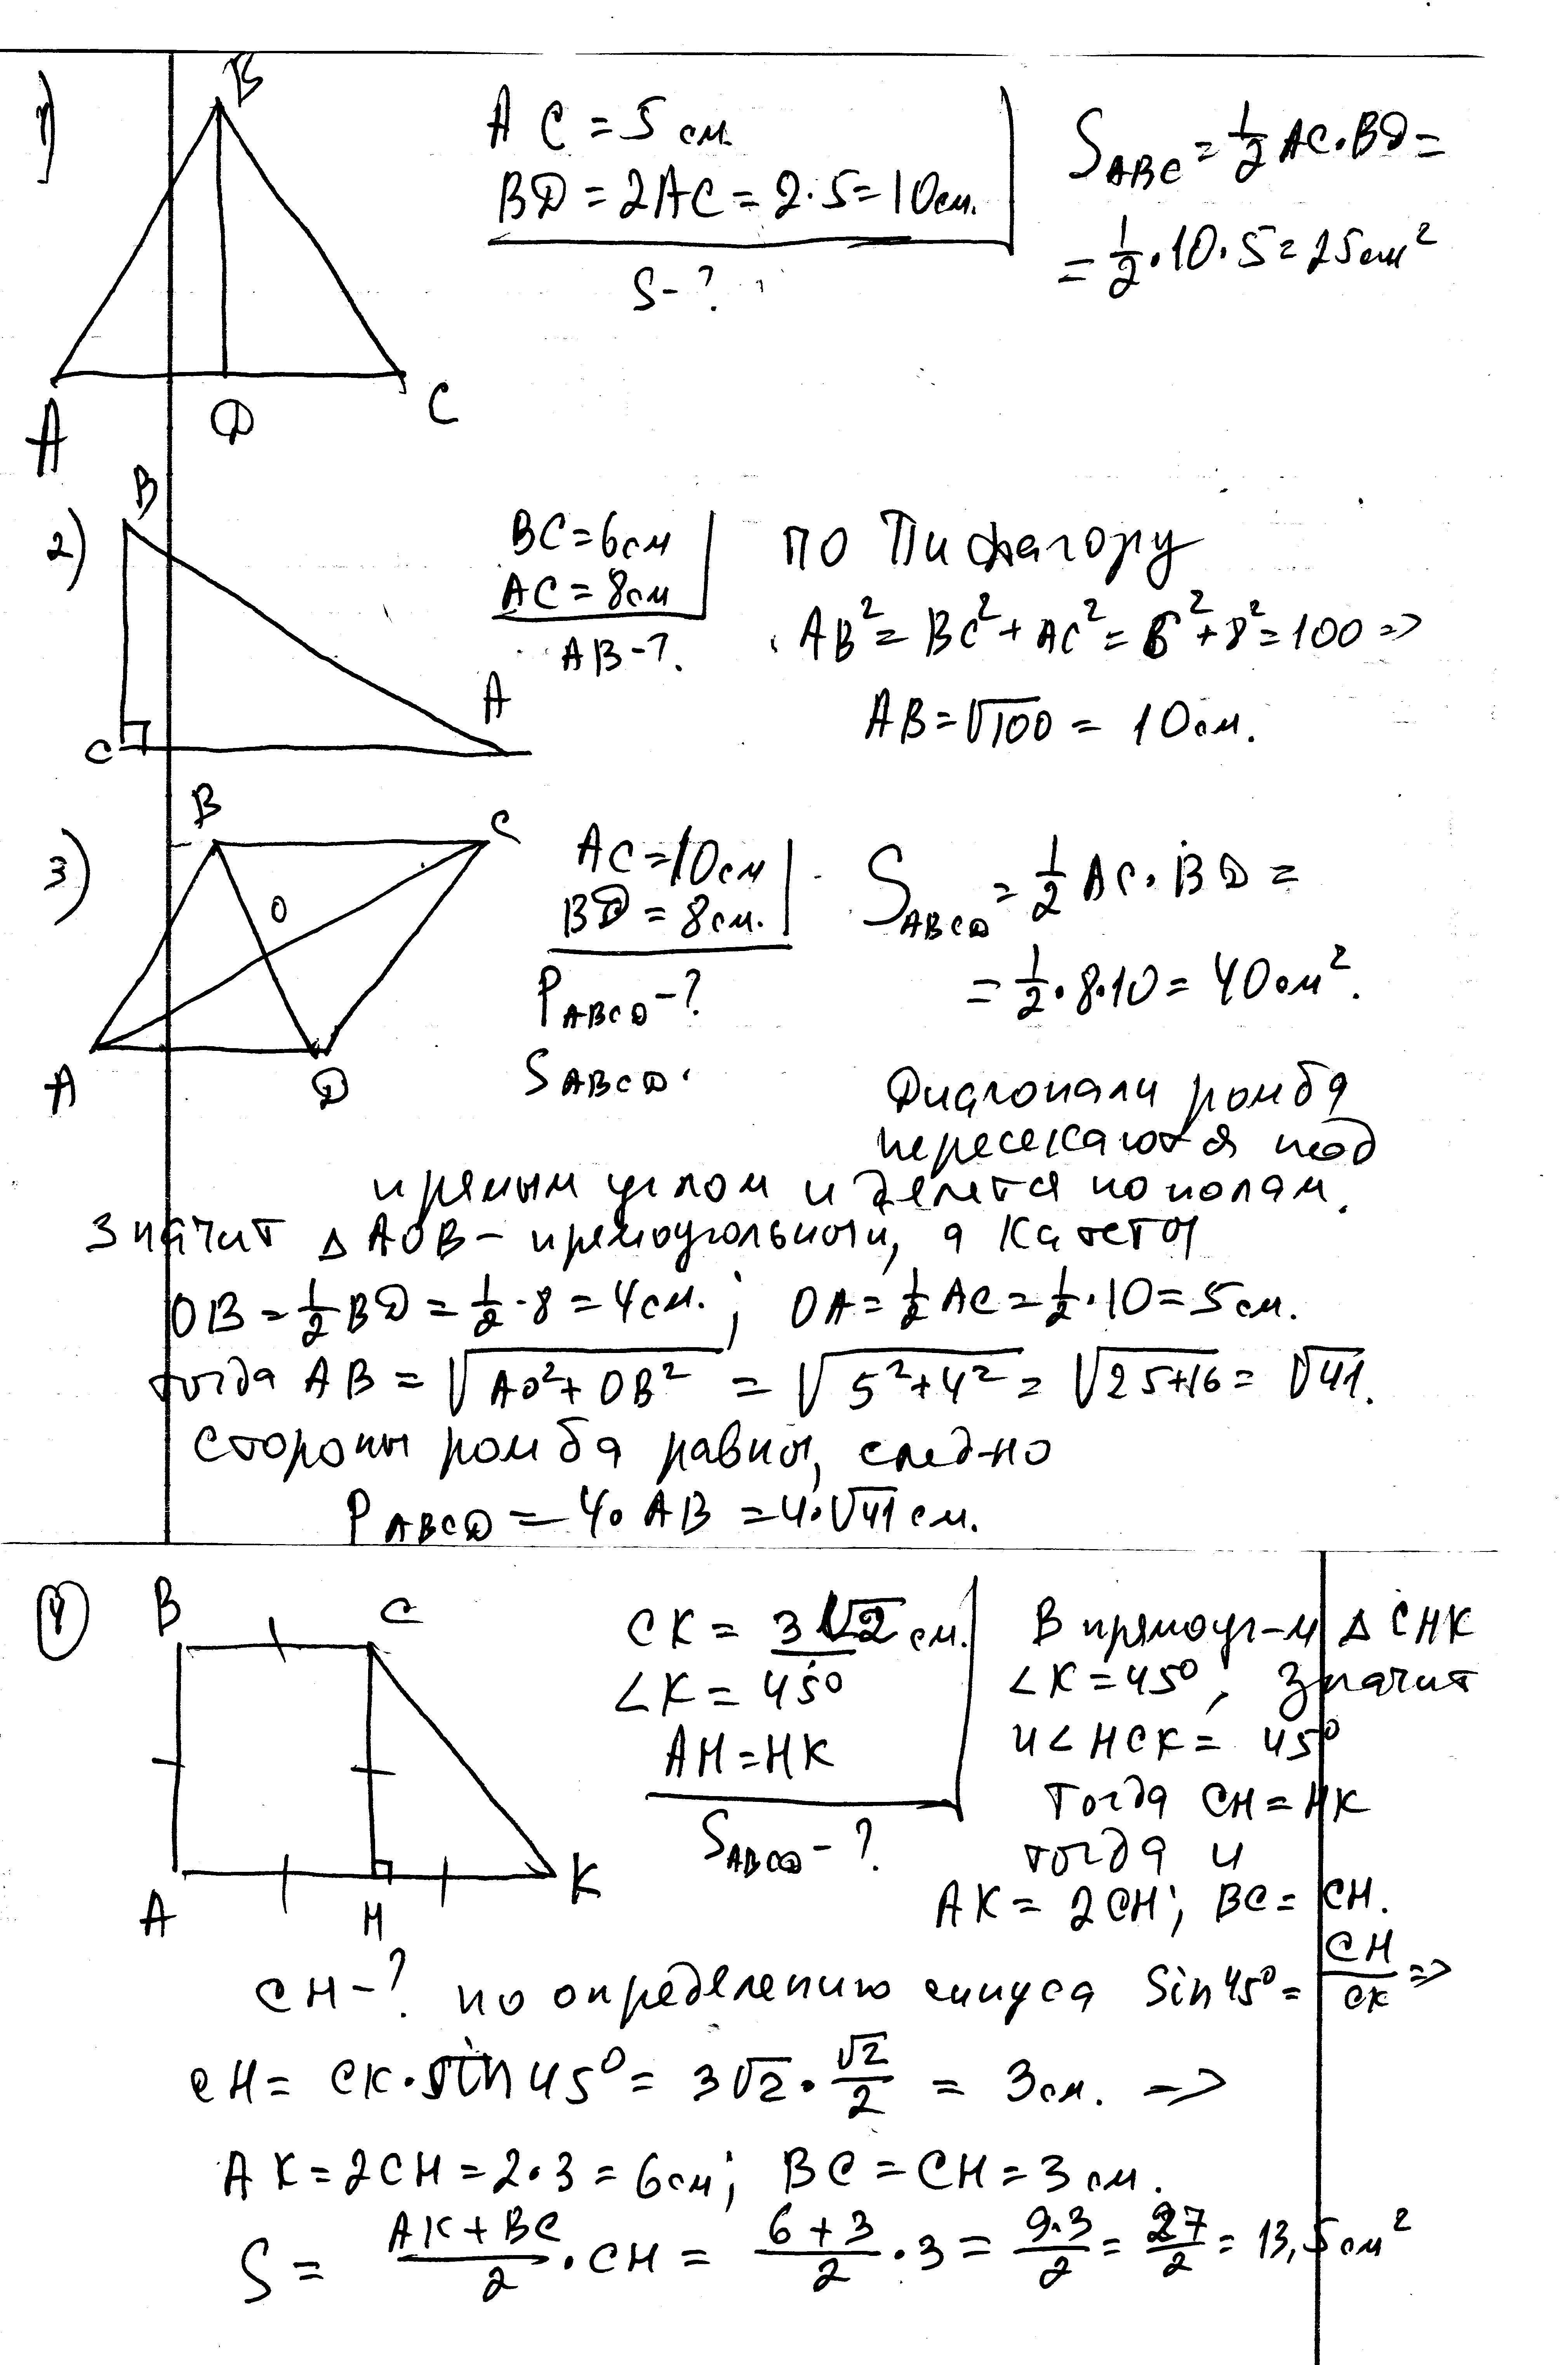 1)
B
A
D
C
AC = 5 см.
BD = 2AC = 2·5 = 10 см.
S - ?
S_ABC = 1/2 AC·BD =
= 1/2·10·5 = 25 см²
2)
B
C
A
BC = 6 см
AC = 8 см
AB - ?.
по Пифагору
AB² = BC² + AC² = 6² + 8² = 100 =>
AB = √100 = 10 см.
3)
B
C
O
A
D
AC = 10 см
BD = 8 см.
P_ABCD - ?
S_ABCD.
S_ABCD = 1/2 AC·BD =
= 1/2·8·10 = 40 см².
Диагонали ромба
пересекаются под
прямым углом и делятся пополам.
Значит △AOB - прямоугольный, а катеты
OB = 1/2 BD = 1/2·8 = 4 см.; OA = 1/2 AC = 1/2·10 = 5 см.
тогда AB = √(AO² + OB²) = √(5² + 4²) = √(25+16) = √41.
Стороны ромба равны, след-но
P_ABCD = 4·AB = 4·√41 см.
4
B
C
A
H
K
CK = 3√2 см.
∠K = 45°
AH = HK
S_ABCD - ?
В прямоуг-м △CHK
∠K = 45°, значит
и ∠HCK = 45°
Тогда CH = HK
тогда и
AK = 2CH; BC = CH.
CH - ? по определению синуса Sin 45° = CH/CK =>
CH = CK·sin 45° = 3√2·√2/2 = 3 см. =>
AK = 2CH = 2·3 = 6 см; BC = CH = 3 см.
S = (AK + BC)/2·CH = (6 + 3)/2·3 = 9·3/2 = 27/2 = 13,5 см²